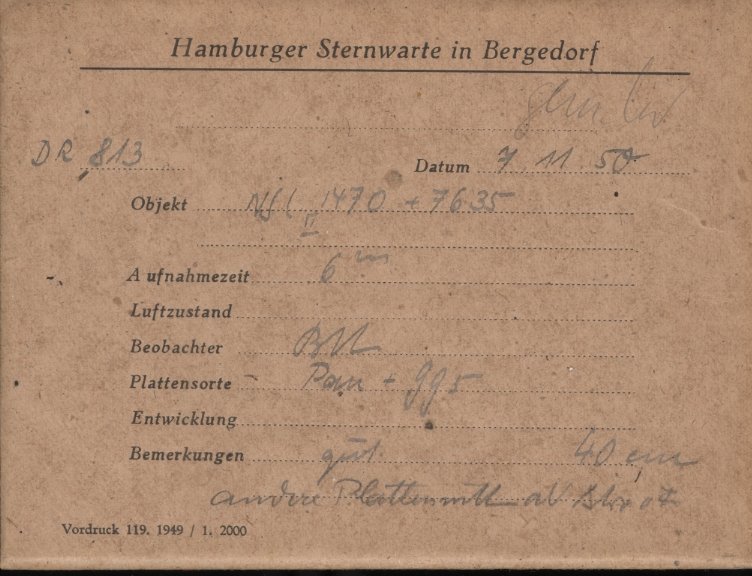 Hamburger Sternwarte in Bergedorf
DR 813
Datum 7 11 50
Objekt 1470 + 7635
II
Aufnahmezeit 6 m
Luftzustand
Beobachter
Plattensorte Pan + gg5
Entwicklung
Bemerkungen gut. 40 cm
andere
Vordruck 119. 1949 / 1. 2000